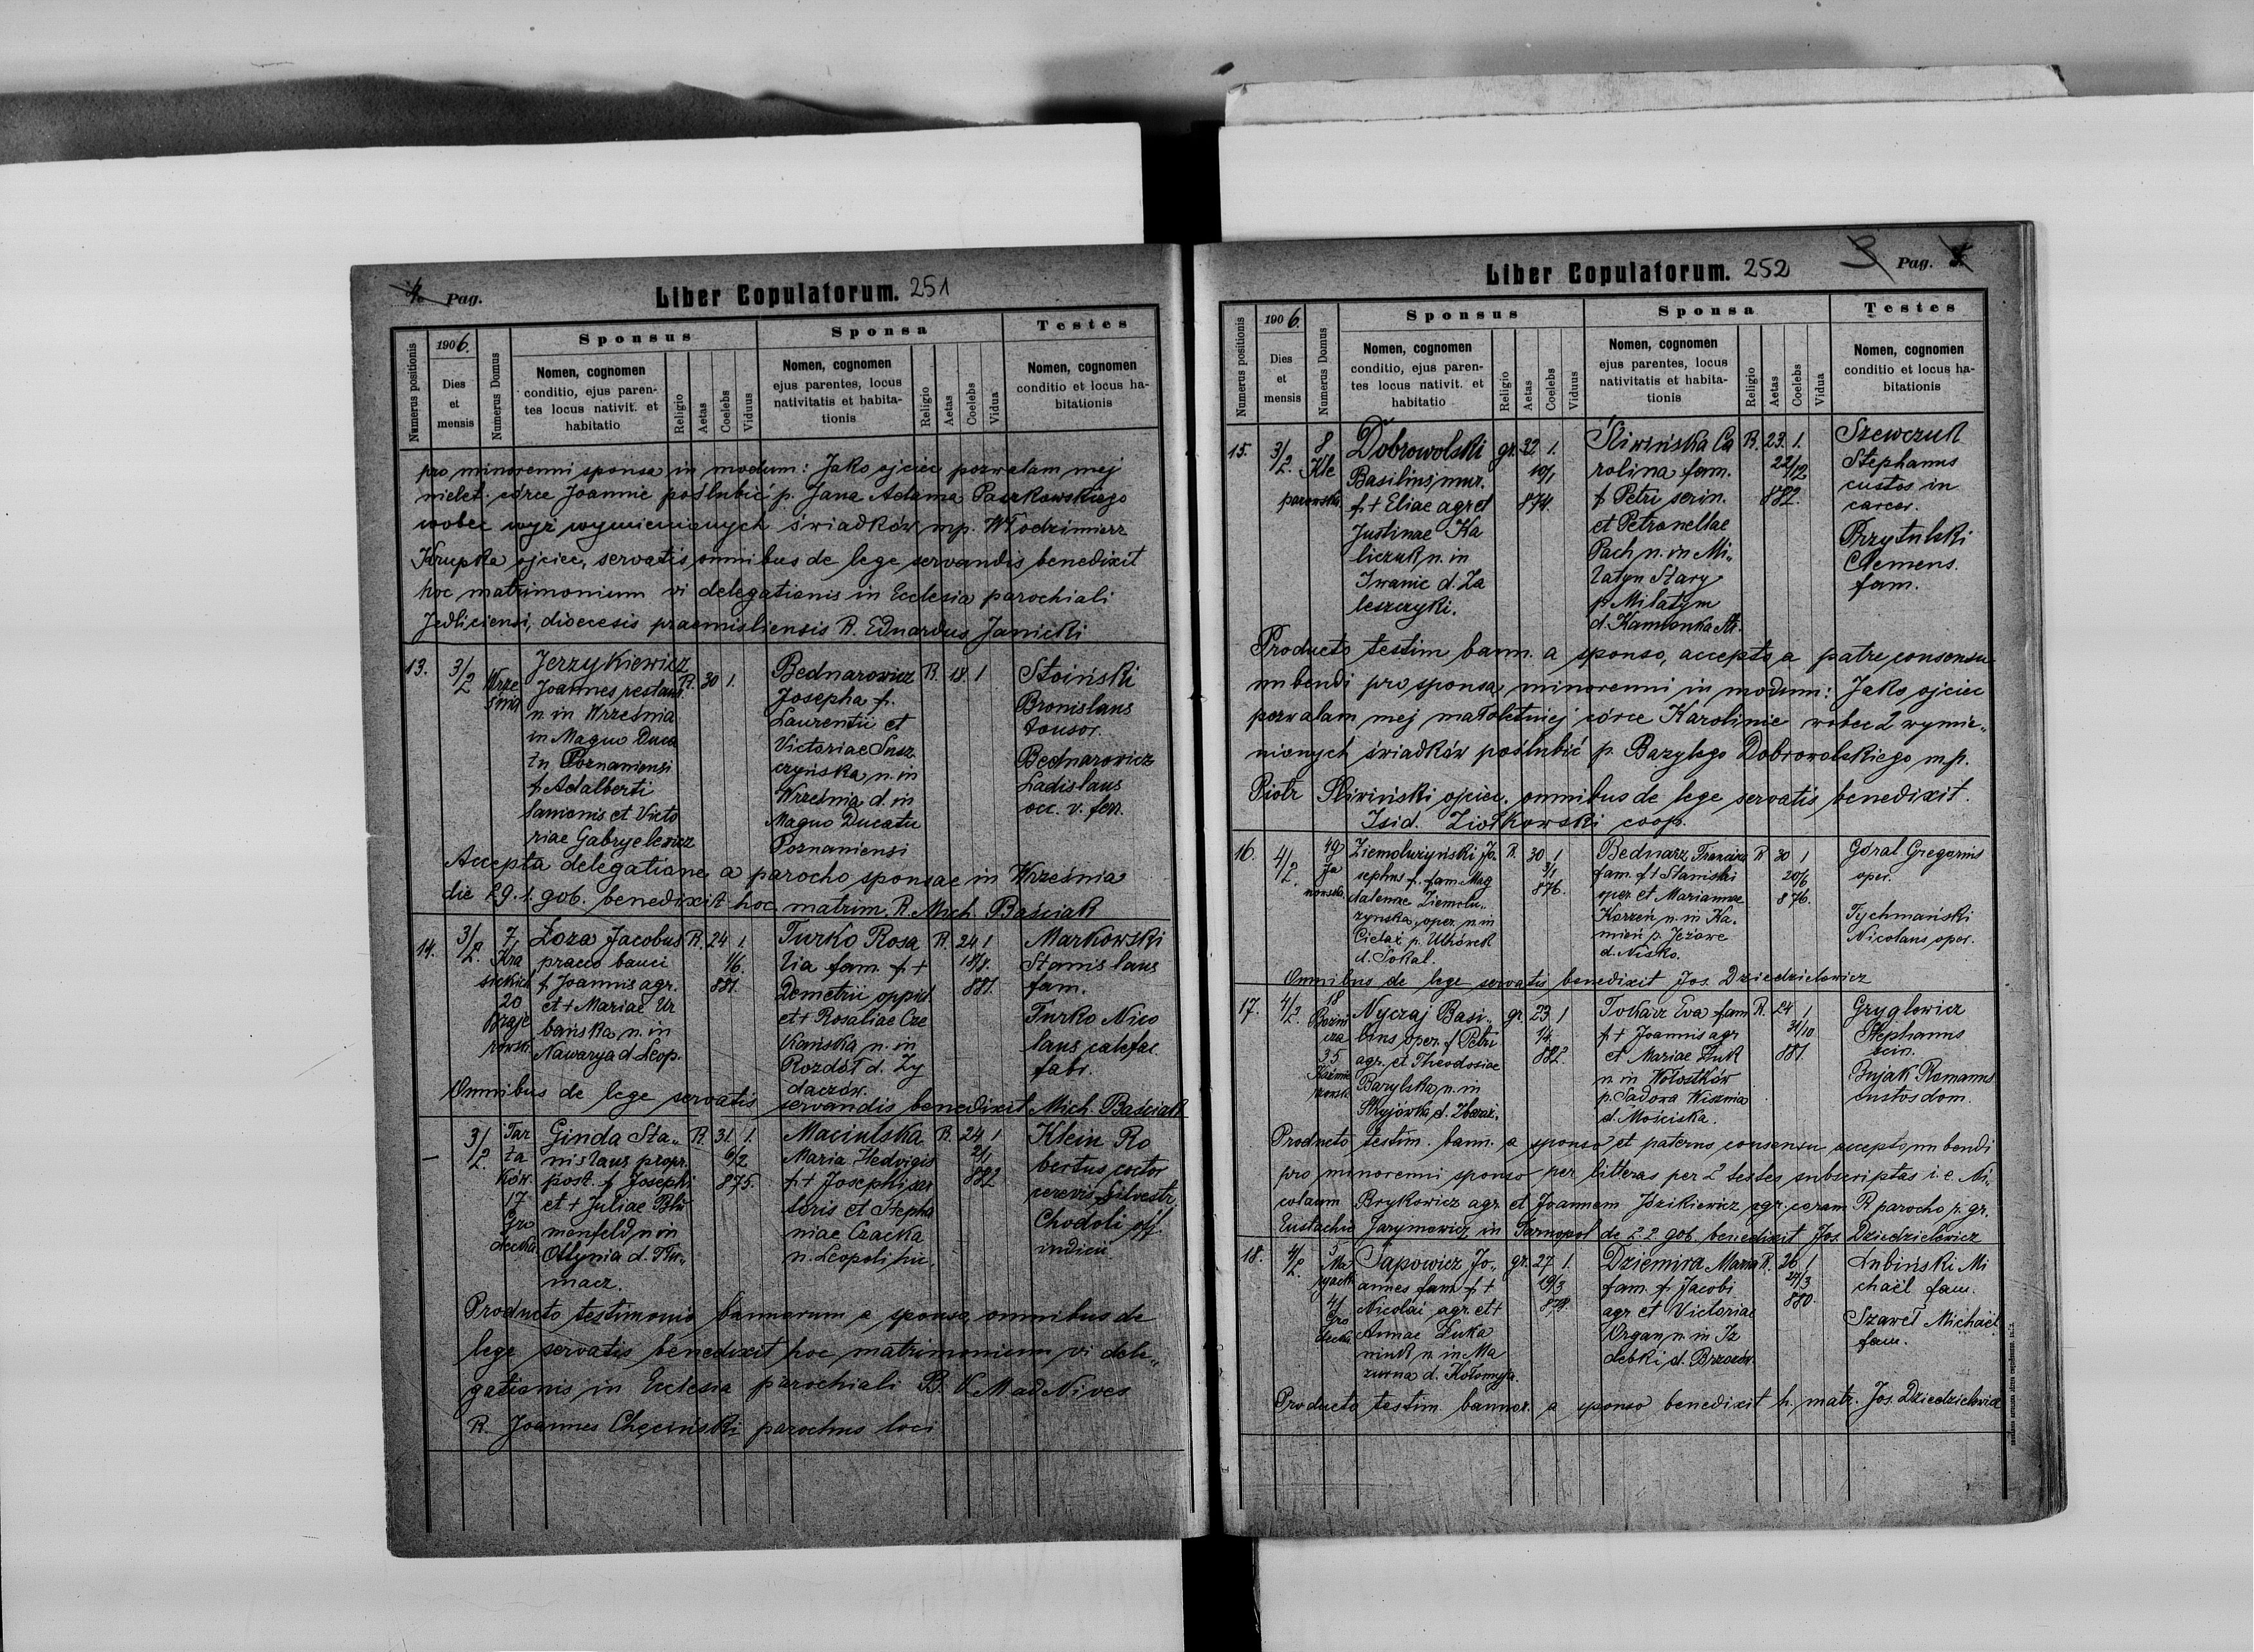 4. Pag.
Liber Copulatorum. 251
Numerus positionis
1906.
Dies
et
mensis
Numerus Domus
Sponsus
Nomen, cognomen
conditio, ejus paren-
tes locus nativit. et
habitatio
Religio
Aetas
Coelebs
Viduus
Sponsa
Nomen, cognomen
ejus parentes, locus
nativitatis et habita-
tionis
Religio
Aetas
Coelebs
Vidua
Testes
Nomen, cognomen
conditio et locus ha-
bitationis
pro minorenni sponsa in modum: Jako ojciec pozwalam mej
nielet. córce Joannie poślubić p. Jana Adama Paszkowskiego
wobec wyż wymienionych świadków mp. Włodzimierz
Krupka ojciec, servatis omnibus de lege servandis benedixit
hoc matrimonium vi delegationis in Ecclesia parochiali
Jedliciensi, dioecesis praemisliensis R. Eduardus Janicki
13.
3/2
Wrze
śnia
Jerzykiewicz
Joannes restaur.
n. in Września
in Magno Duca
tu Poznaniensi
f. Adalberti
lanionis et Victo
riae Gabryelewicz
R. 30 1.
Bednarowicz
Josepha f.
Laurentii et
Victoriae Susz
czyńska n. in
Września d. in
Magno Ducatu
Poznaniensi
R. 18. 1
Stoiński
Bronislaus
tonsor.
Bednarowicz
Ladislaus
occ. v. ferr.
Accepta delegatione a parocho sponsae in Września
die 29. 1. 906. benedixit hoc matrim. R. Mich. Baściak
14.
3/2.
7
Kra
sickich
20
Łoza Jacobus
praeco banci
f. Joannis agr.
et + Mariae Ur
bańska n. in
Nawarya d. Leop.
R. 24 1.
1/6.
881.
Turko Rosa
lia fam. f. +
Demetrii oppid.
et + Rosaliae Cze
kańska n. in
Rozdół d. Ży
daczów.
R. 24 1
18/8.
881.
Markowski
Stanislaus
fam.
Turko Nico
laus calefac.
fabr.
Omnibus de lege servatis servandis benedixit Mich. Baściak
—
3/2.
Tar
ta
ków.
17
Gro
decka
Ginda Sta„
nislaus propr.
post. f. Josephi
et + Juliae Blu
menfeld n. in
Ottynia d. Tłu„
macz.
R. 31 1.
6/2
875.
Maciulska
Maria Hedvigis
f. + Josephi sar
toris et Stepha
niae Czacka
n. Leopoli hic.
R. 24 1
2/1
882
Klein Ro
bertus coctor
cerevis. Silvestr.
Chodoli off.
indicii
Producto testimonio bannorum a sponsa, omnibus de
lege servatis benedixit hoc matrimonium vi dele„
gationis in Ecclesia parochiali B. V. M. ad Nives
R. Joannes Chęciński parochus loci
Liber Copulatorum. 252
Pag.
Numerus positionis
1906.
Dies
et
mensis
Numerus Domus
Sponsus
Nomen, cognomen
conditio, ejus paren-
tes locus nativit. et
habitatio
Religio
Aetas
Coelebs
Viduus
Sponsa
Nomen, cognomen
ejus parentes, locus
nativitatis et habita-
tionis
Religio
Aetas
Coelebs
Vidua
Testes
Nomen, cognomen
conditio et locus ha-
bitationis
15.
3/2.
8
Kle
parowska
Dobrowolski
Basilius, mur.
f. + Eliae agr et
Justinae Ka
liczuk n. in
Iwanie d. Za
leszczyki.
gr. 32 1.
10/1
874.
Śliwińska Ca
rolina fam.
f. Petri serin.
et Petronellae
Pach n. in Mi„
latyn Stary
p. Milatyn
d. Kamionka Str.
R. 23. 1.
22/12
882.
Szewczuk
Stephanus
custos in
carcer.
Przytulski
Clemens.
fam.
Producto testim. bann. a sponso, accepto a patre consensu
nubendi pro sponsa minorenni in modum: Jako ojciec
pozwalam mej małoletniej córce Karolinie wobec 2 wymie„
nionych świadków poślubić p. Bazylego Dobrowolskiego mp.
Piotr Śliwiński ojciec. omnibus de lege servatis benedixit.
Isid. Ziółkowski coop.
16.
4/2.
49
Ja
nowska
Ziemołużyński Jo.
sephus f. fam. Mag
dalenae Ziemołu„
żynska, oper. n. in
Cieląż p. Uhrówek
d. Sokal.
R. 30 1
3/1
876.
Bednarz Francisca
fam. f. + Stanislai
oper. et Mariannae
Korzeń n. in Ka„
mień p. Jeżowe
d. Nisko.
R 30 1
20/6
876.
Góral Gregorius
oper.
Tychmański
Nicolaus oper.
Omnibus de lege servatis benedixit Jos. Dziedzielewicz
17.
4/2.
18
Bożni
cza
35
Kaźmie
rzowsk.
Nyczaj Basi„
lius oper. f. Petri
agr. et Theodosiae
Barylska n. in
Skryjówka d. Zbaraż.
gr. 23 1
1/4.
882.
Tokarz Eva fam
f. + Joannis agr
et Mariae Żuk
n. in Wołostków
p. Sądowa Wisznia
d. Mościska.
R. 24 1
31/10
881.
Gryglewicz
Stephanus
Bujak Romanus
custos dom.
Producto testim. bann. a sponso et paterno consensu accepto nubendi
pro minorenni sponso per litteras per 2 testes subscriptas i. e. Ni„
colaum Brykowicz agr. et Joannem Jdzikiewicz agr. coram R. parocho p. gr.
Eustachio Jarymowicz, in Tarnopol de 2. 2. 906. benedixit Jos. Dziedzielewicz
18.
4/2.
5
Ma
ryack
41
Gro
decka
Sapowicz Jo„
annes fam. f. +
Nicolai agr. et +
Annae Łuka
niuk n. in Ma
zurna d. Kołomyja.
gr. 27 1.
19/3
Dziemira Maria
fam. f. Jacobi
agr. et Victoriae
Organ, n. in Iz
debki d. Brzozów.
R. 26 1
24/3
880.
Łubiński Mi
chaël fam.
Szaweł Michaël
fam.
Producto testim. bannor. a sponso benedixit h. matr. Jos. Dziedzielewicz